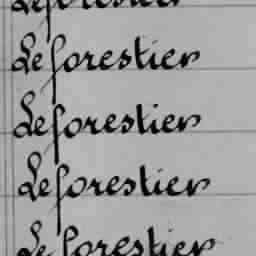 Leforestier
Leforestier
Leforestier
Leforestier
Leforestier